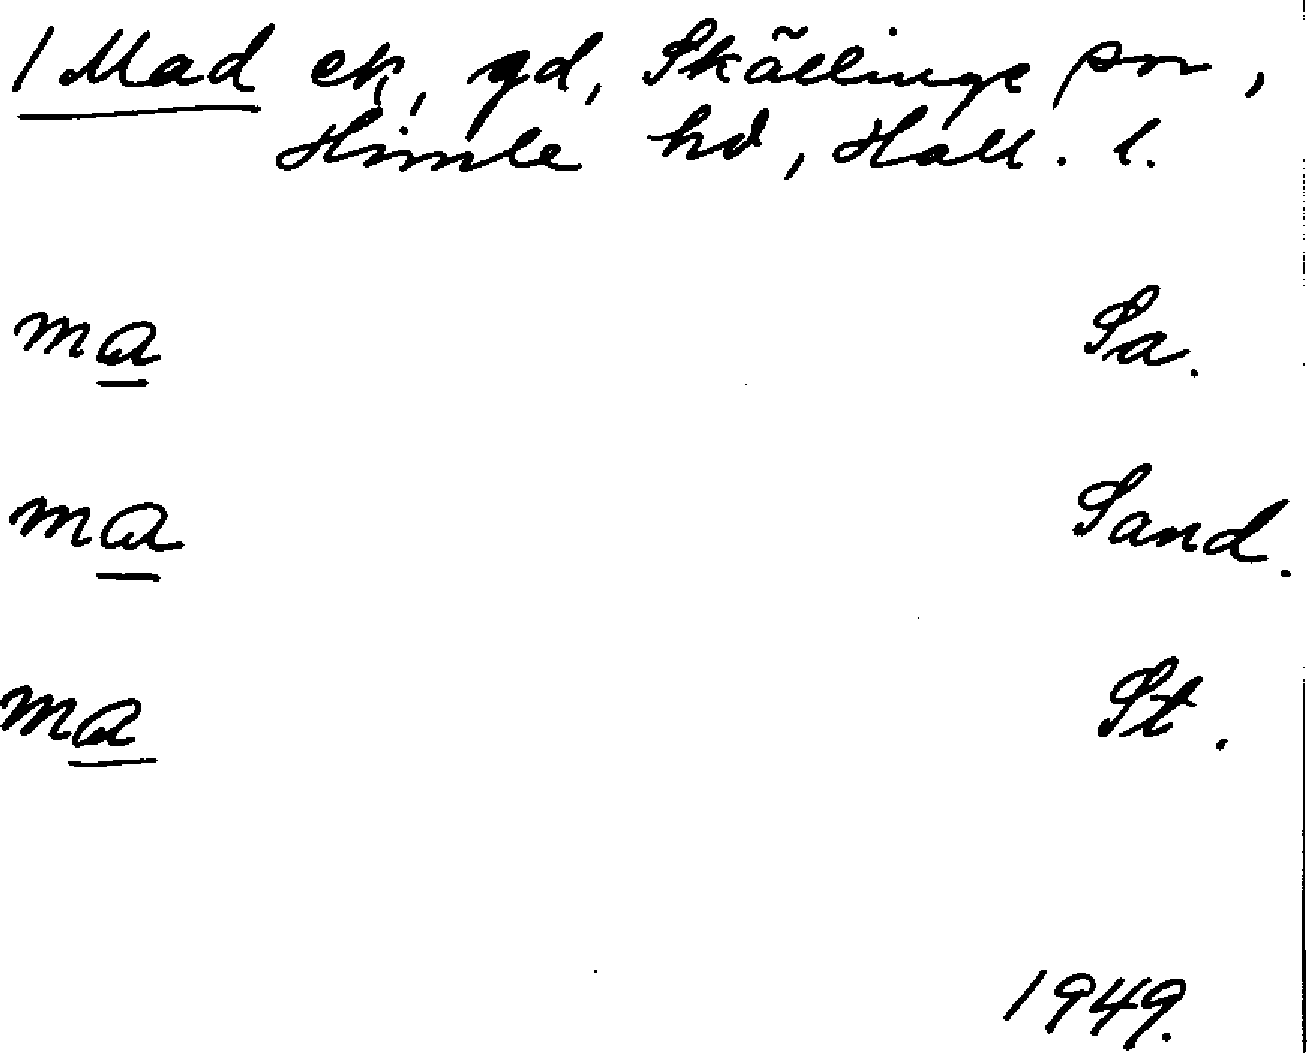 1 Mad ek, gd, Skällinge sn,
Himle hd, Hall. l.
ma Sa.
ma Sand.
ma St.
1949.